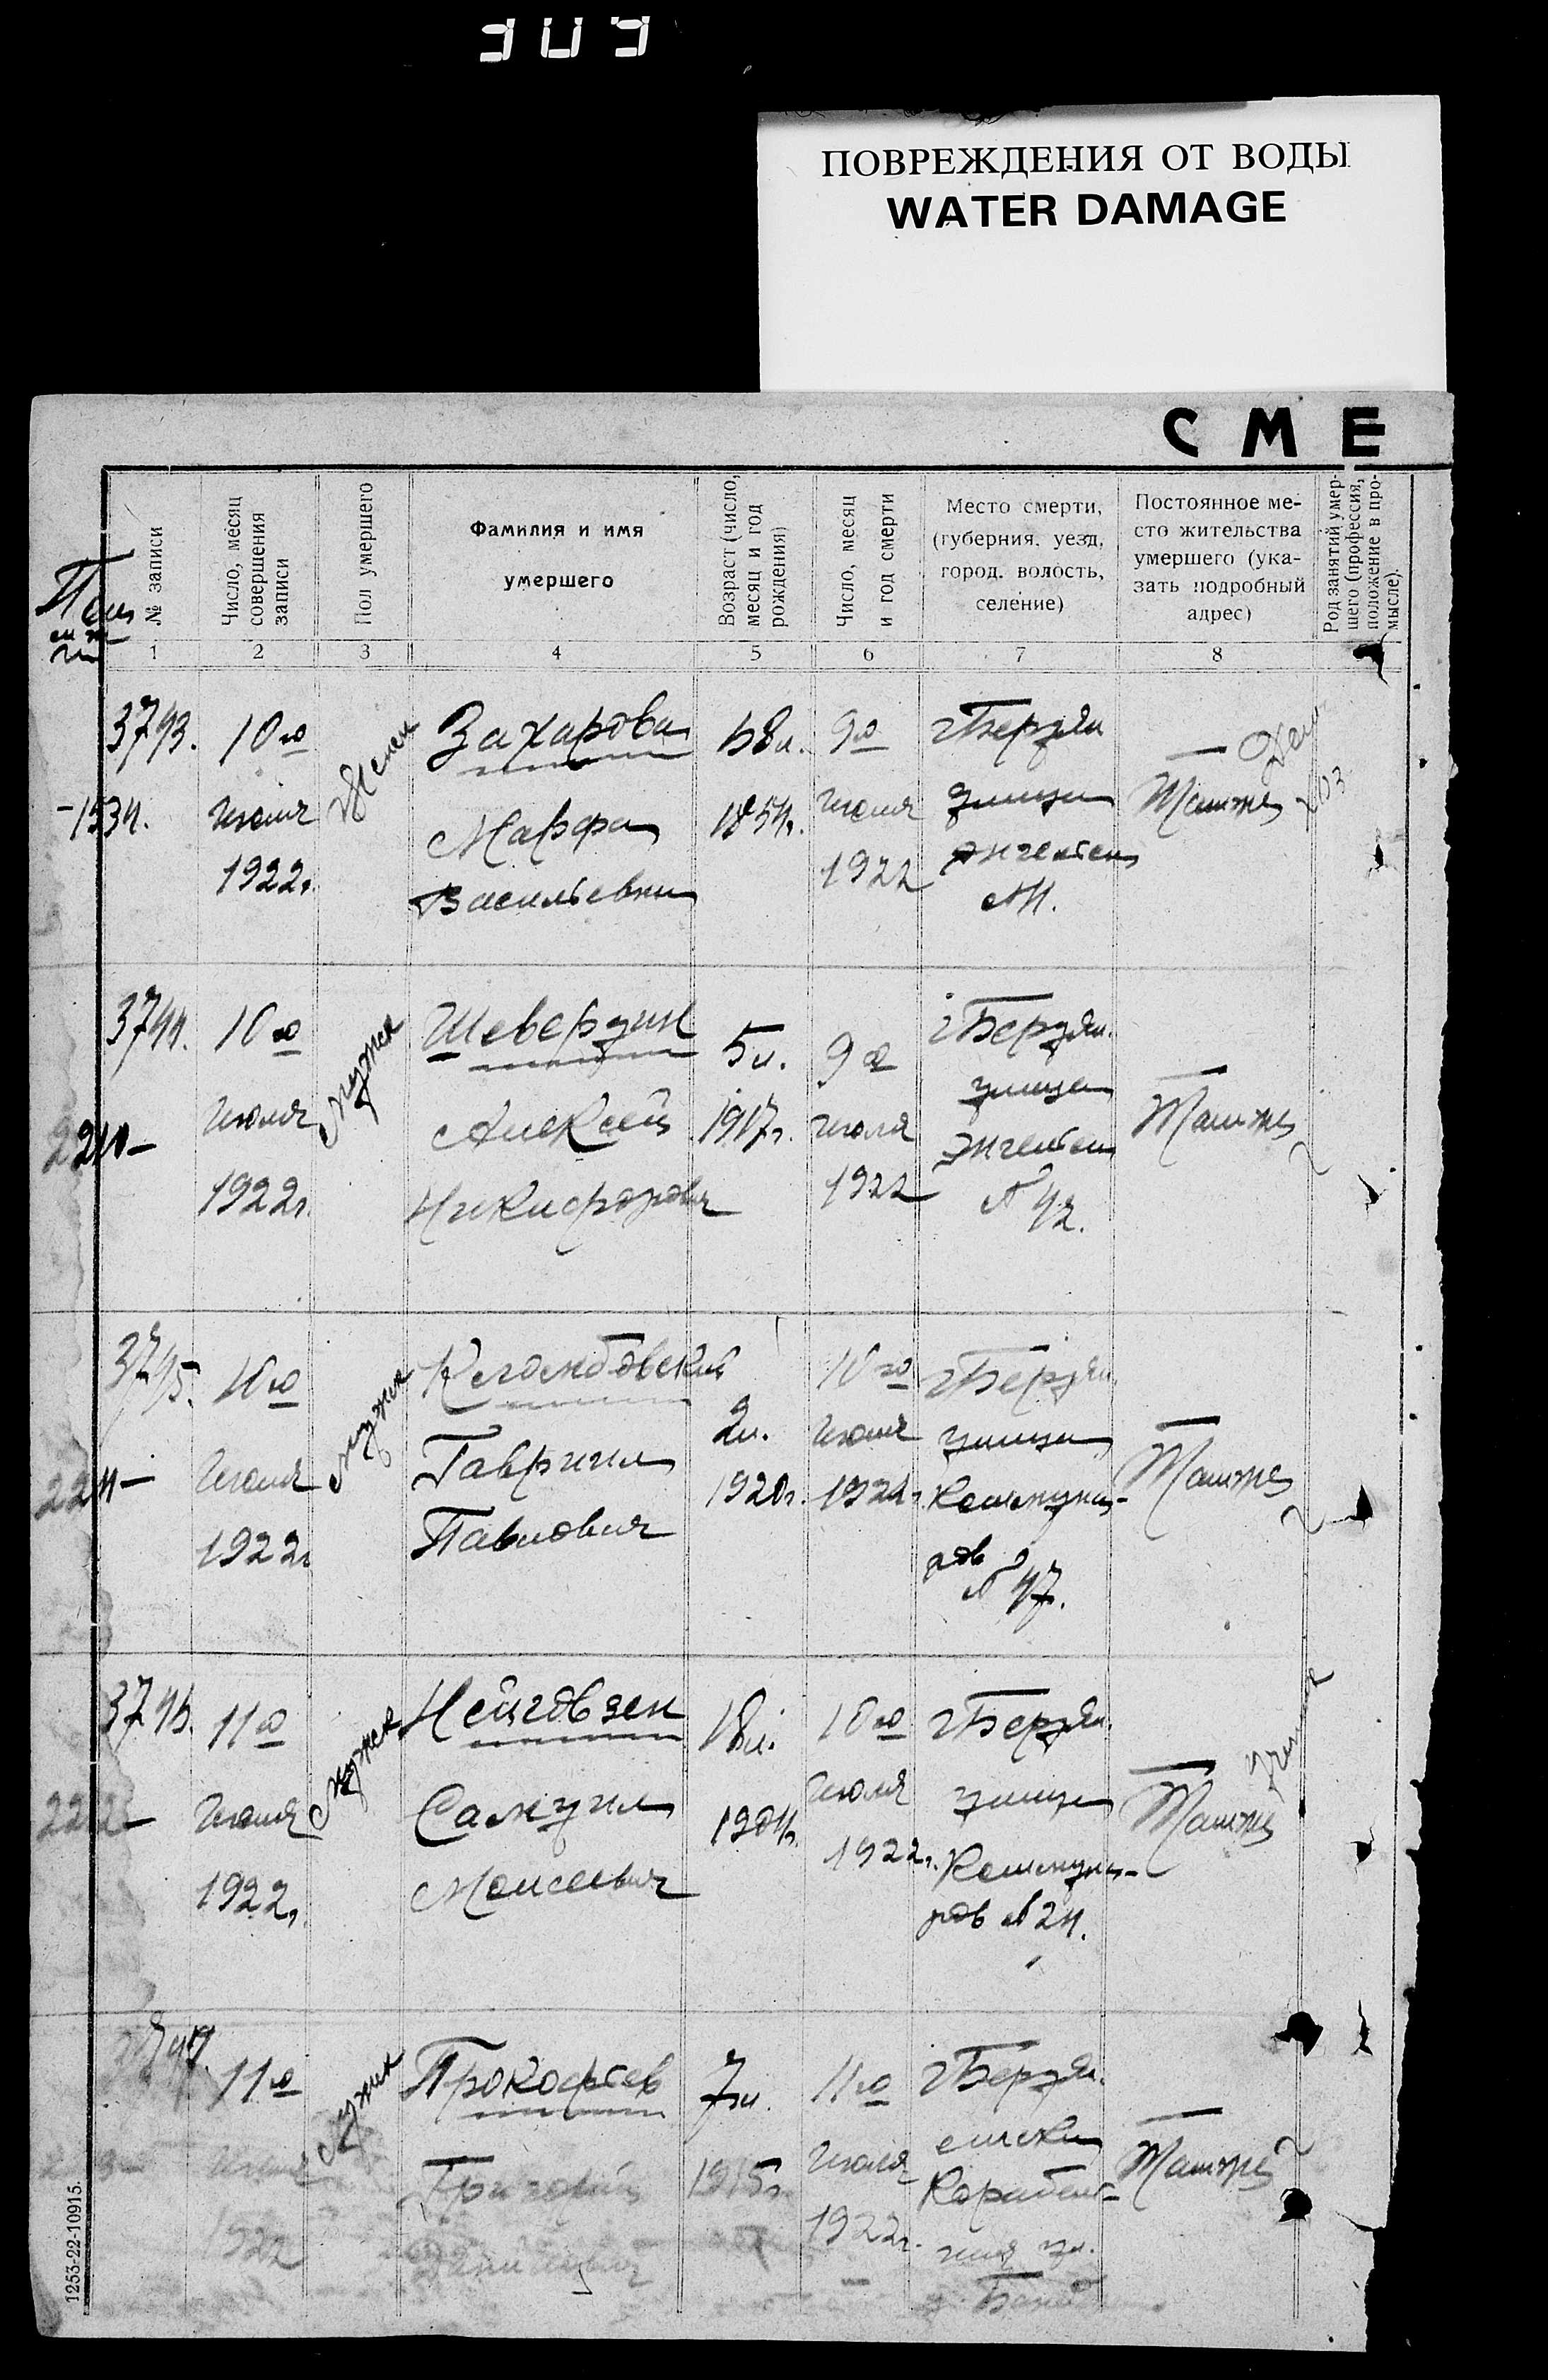 309
ПОВРЕЖДЕНИЯ ОТ ВОДЫ
WATER DAMAGE
СМЕ
№ записи
Число, месяц
совершения
записи
Пол умершего
Фамилия и имя
умершего
Возраст (число,
месяц и год
рождения)
Число, месяц
и год смерти
Место смерти,
(губерния, уезд,
город, волость,
селение)
Постоянное ме-
сто жительства
умершего (ука-
зать подробный
адрес)
Род занятий умер-
шего (профессия,
положение в про-
мысле).
1 2 3 4 5 6 7 8
3743.
10го
июля
1922г.
Женск
Захарова
Марфа
Васильевна
68л.
1854г.
9го
июля
1922
г Бердян
улица
Энгельса
Тамже
3744.
10го
июля
1922г.
мужск
Шевердин
Алексей
Никифорович
5л.
1917г.
9го
июля
1922
г Бердян.
улица
Энгельса
№ 42.
Тамже
3745.
10го
июля
1922г
мужск
Гавриил
Павлович
2л.
1920г.
10го
июля
1922г.
г Бердян
улица
Коммунар-
ров
№ 47.
Тамже
3746.
11го
июля
1922г.
мужск
Нейговзен
Самуил
Моисеевич
18л.
1904г.
10го
июля
1922г.
г Бердян.
улица
Коммунар-
ров № 24.
Тамже
3747
11го
июля
1922
мужск
Прокофьев
Григорий
7л.
1915г.
11го
июля
1922г.
г Бердян.
Тамже
1253-22-10915.